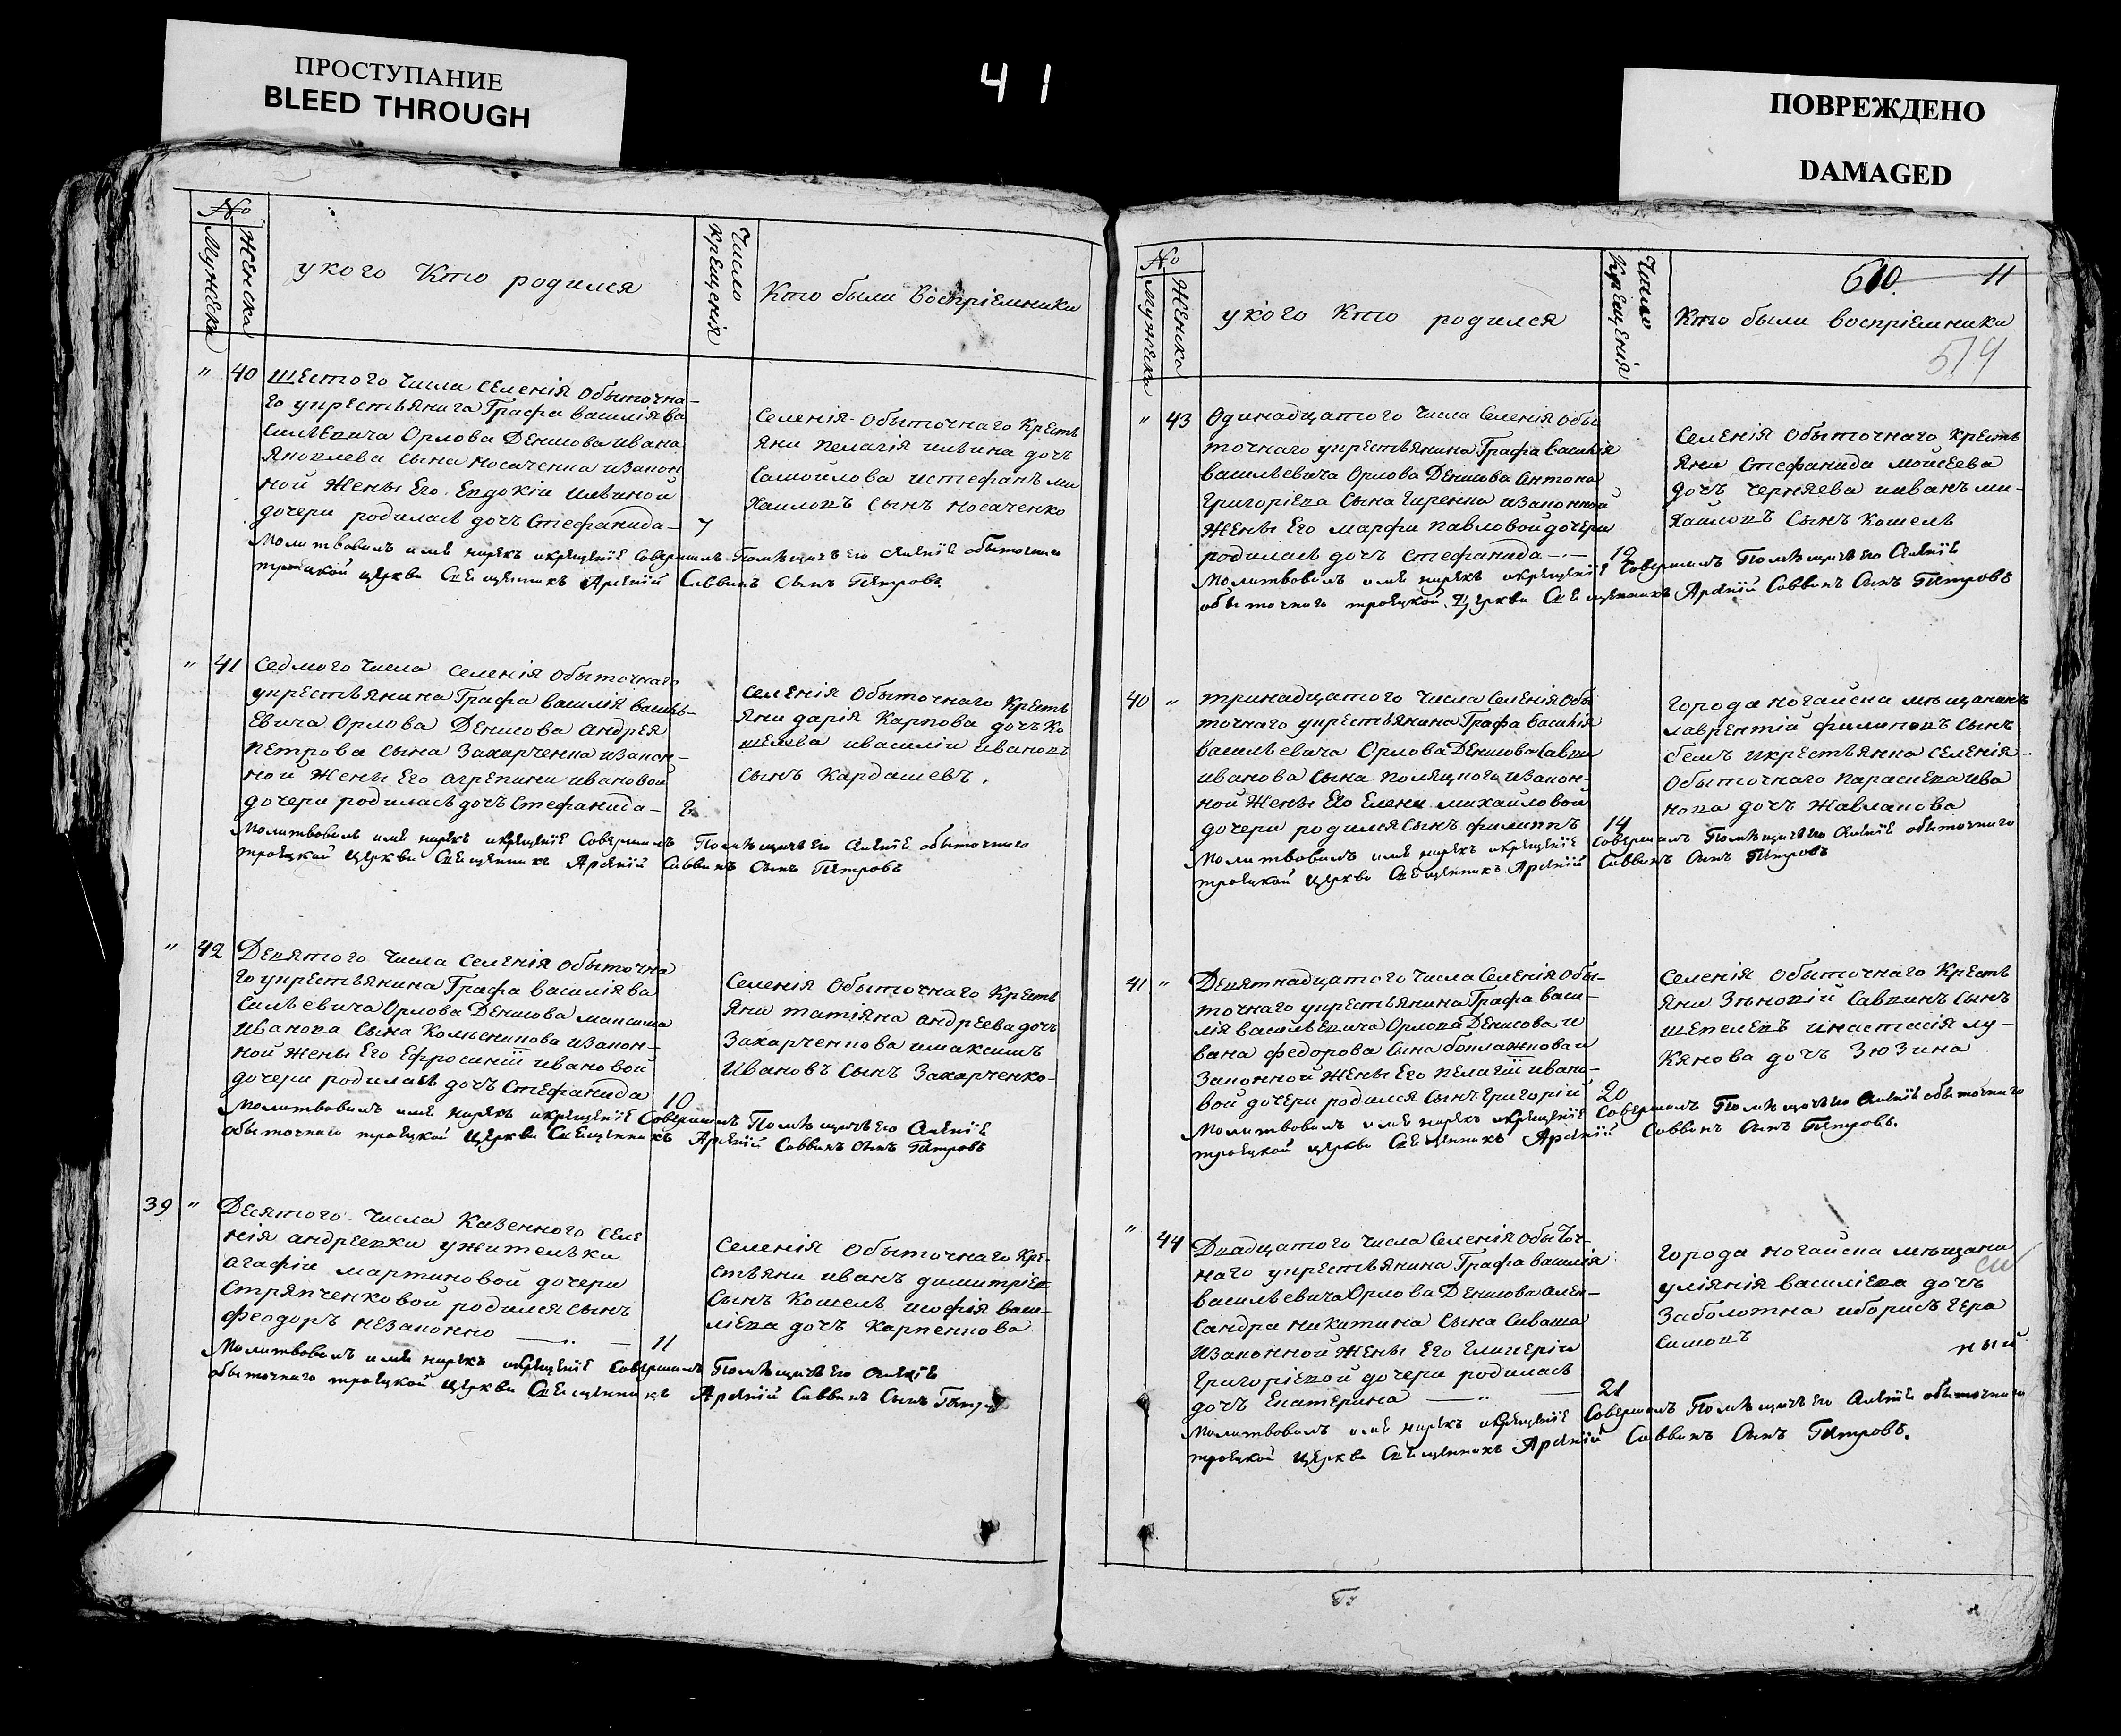 ПРОСТУПАНИЕ
BLEED THROUGH
41
ПОВРЕЖДЕНО
DAMAGED
№
Мужеска
Женска
укого Кто родился
Число крещенія
Кто были воспріемники
" 40 Шестого числа селенія Обыточна-
го укрестьянина Графа василія ва
сильевича Орлова Денисова ивана
Яковлева сына Носаченка изакон
ной жены Его Евдокіи ильиной
дочери родилась дочь Стефанида— 7
Селенія Обыточнаго Кресть
яни пелагія ильина дочь
Самойлова истефанъ ми
хаиловъ сынъ носаченко
Молитвовалъ имя нарекъ икрещеніе Совершилъ Помѣщичьего Селеніе обыточного
троицкой церкви Священникъ Арсеній Саввинъ Сынъ Петровъ.
" 41 Седмого числа селенія обыточнаго
укрестьянина Графа василія василь-
евича Орлова Денисова андрея
петрова сына Захарченка изакон-
ной жены Его агрепини ивановой
дочери родилась дочь Стефанида—
Селенія Обыточнаго Кресть
яни дарія Карпова дочь Ко
шелева ивасилій ивановъ
сынъ Кардашевъ.
Молитвовалъ имя нарекъ икрещеніе Совершилъ Помѣщичьего Селеніе обыточного
троицкой церкви Священникъ Арсеній Саввинъ Сынъ Петровъ
" 42 Девятого числа селенія обыточна
го укрестьянина Графа василія ва
сильевича Орлова Денисова максима
иванова сына Колесникова изакон-
ной жены Его Ефросиніи ивановой
дочери родилась дочь Стефанида 10
Селенія Обыточнаго Кресть
яни татіяна андреева дочь
Захарченкова имаксимъ
ивановъ сынъ Захарченко-
Молитвовалъ имя нарекъ икрещеніе Совершилъ Помѣщичьего Селеніе
обыточного троицкой церкви Священникъ Арсеній Саввинъ Сынъ Петровъ
39 " Десятого числа Казенного селе
нія андреевки ужительки
агафіи мартиновой дочери
Стряпченковой родился сынъ
феодоръ незаконно — " — 11
Селенія Обыточнаго Кре-
стьяни иванъ димитріев
сынъ Кошель исофія васи-
ліева дочь Карпенкова
Молитвовалъ имя нарекъ икрещеніе Совершилъ Помѣщичьего Селеніе
обыточнаго троицкой церкви Священникъ Арсеній Саввинъ Сынъ
№
Мужеска
Женска
укого Кто родился
Число Крещенія
610. 11
Кто были воспріемники
514
" 43 Одинадцатого числа Селенія Обы
точнаго укрестьянина Графа василія
васильевича Орлова Денисова антона
Григоріева сына Гиренка изаконной
жены Его марфи павловой дочери
родилась дочь стефанида —.— 12
Селенія Обыточнаго кресть
яни Стефанида мойсеева
дочь черняева ииванъ ми-
хайловъ сынъ Кошель
Молитвовалъ имя нарекъ икрещеніе Совершилъ Помѣщичьего Селеніе
обыточнаго троецкой Церкви Священникъ Арсеній Саввинъ Сынъ Петровъ
40 " тринадцатого числа Селенія Обы
точнаго укрестьянина Графа василія
васильевича Орлова Денисова Савви
иванова сына полицкого изакон-
ной жены Его Елени михайловой
дочери родился сынъ филиппъ 14
Города ногайска мѣщанинъ
лаврентій филиповъ сынъ
бемъ икрестьянка селенія
Обыточнаго параскева ива
нова дочь жавланова
Молитвовалъ имя нарекъ икрещеніе Совершилъ Помѣщичьего Селеніе обыточного
троецкой церкви Священникъ Арсеній Саввинъ Сынъ Петровъ
41 " Девятнадцатого числа Селенія Обы-
точнаго укрестьянина Графа васи-
лія васильевича Орлова Денисова и
вана федорова сына и
законной жены Его пелагіи ивано-
вой дочери родился сынъ григорій 20
Селенія Обыточнаго Кресть
яни Зѣновій Саввинъ сынъ
шепелевъ инастасія лу-
кянова дочь Зюзина
Молитвовалъ имя нарекъ икрещеніе Совершилъ Помѣщичьего Селеніе обыточного
троецкой церкви Священникъ Арсеній Саввинъ Сынъ Петровъ.
" 44 Двадцатого числа Селенія обыточ-
наго укрестьянина Графа василія
васильевича Орлова Денисова алек-
сандра никитина сына Сиваша
изаконной жены Его Гликеріи
Григоріевой дочери родилась
дочь Екатерина — " — 21
Города ногайска мѣщани
уліянія василіева дочь
Заболотна иборисъ гера
симовъ
ный
Молитвовалъ имя нарекъ икрещеніе Совершилъ Помѣщичьего Селеніе обыточного
троецкой церкви Священникъ Арсеній Саввинъ Сынъ Петровъ.